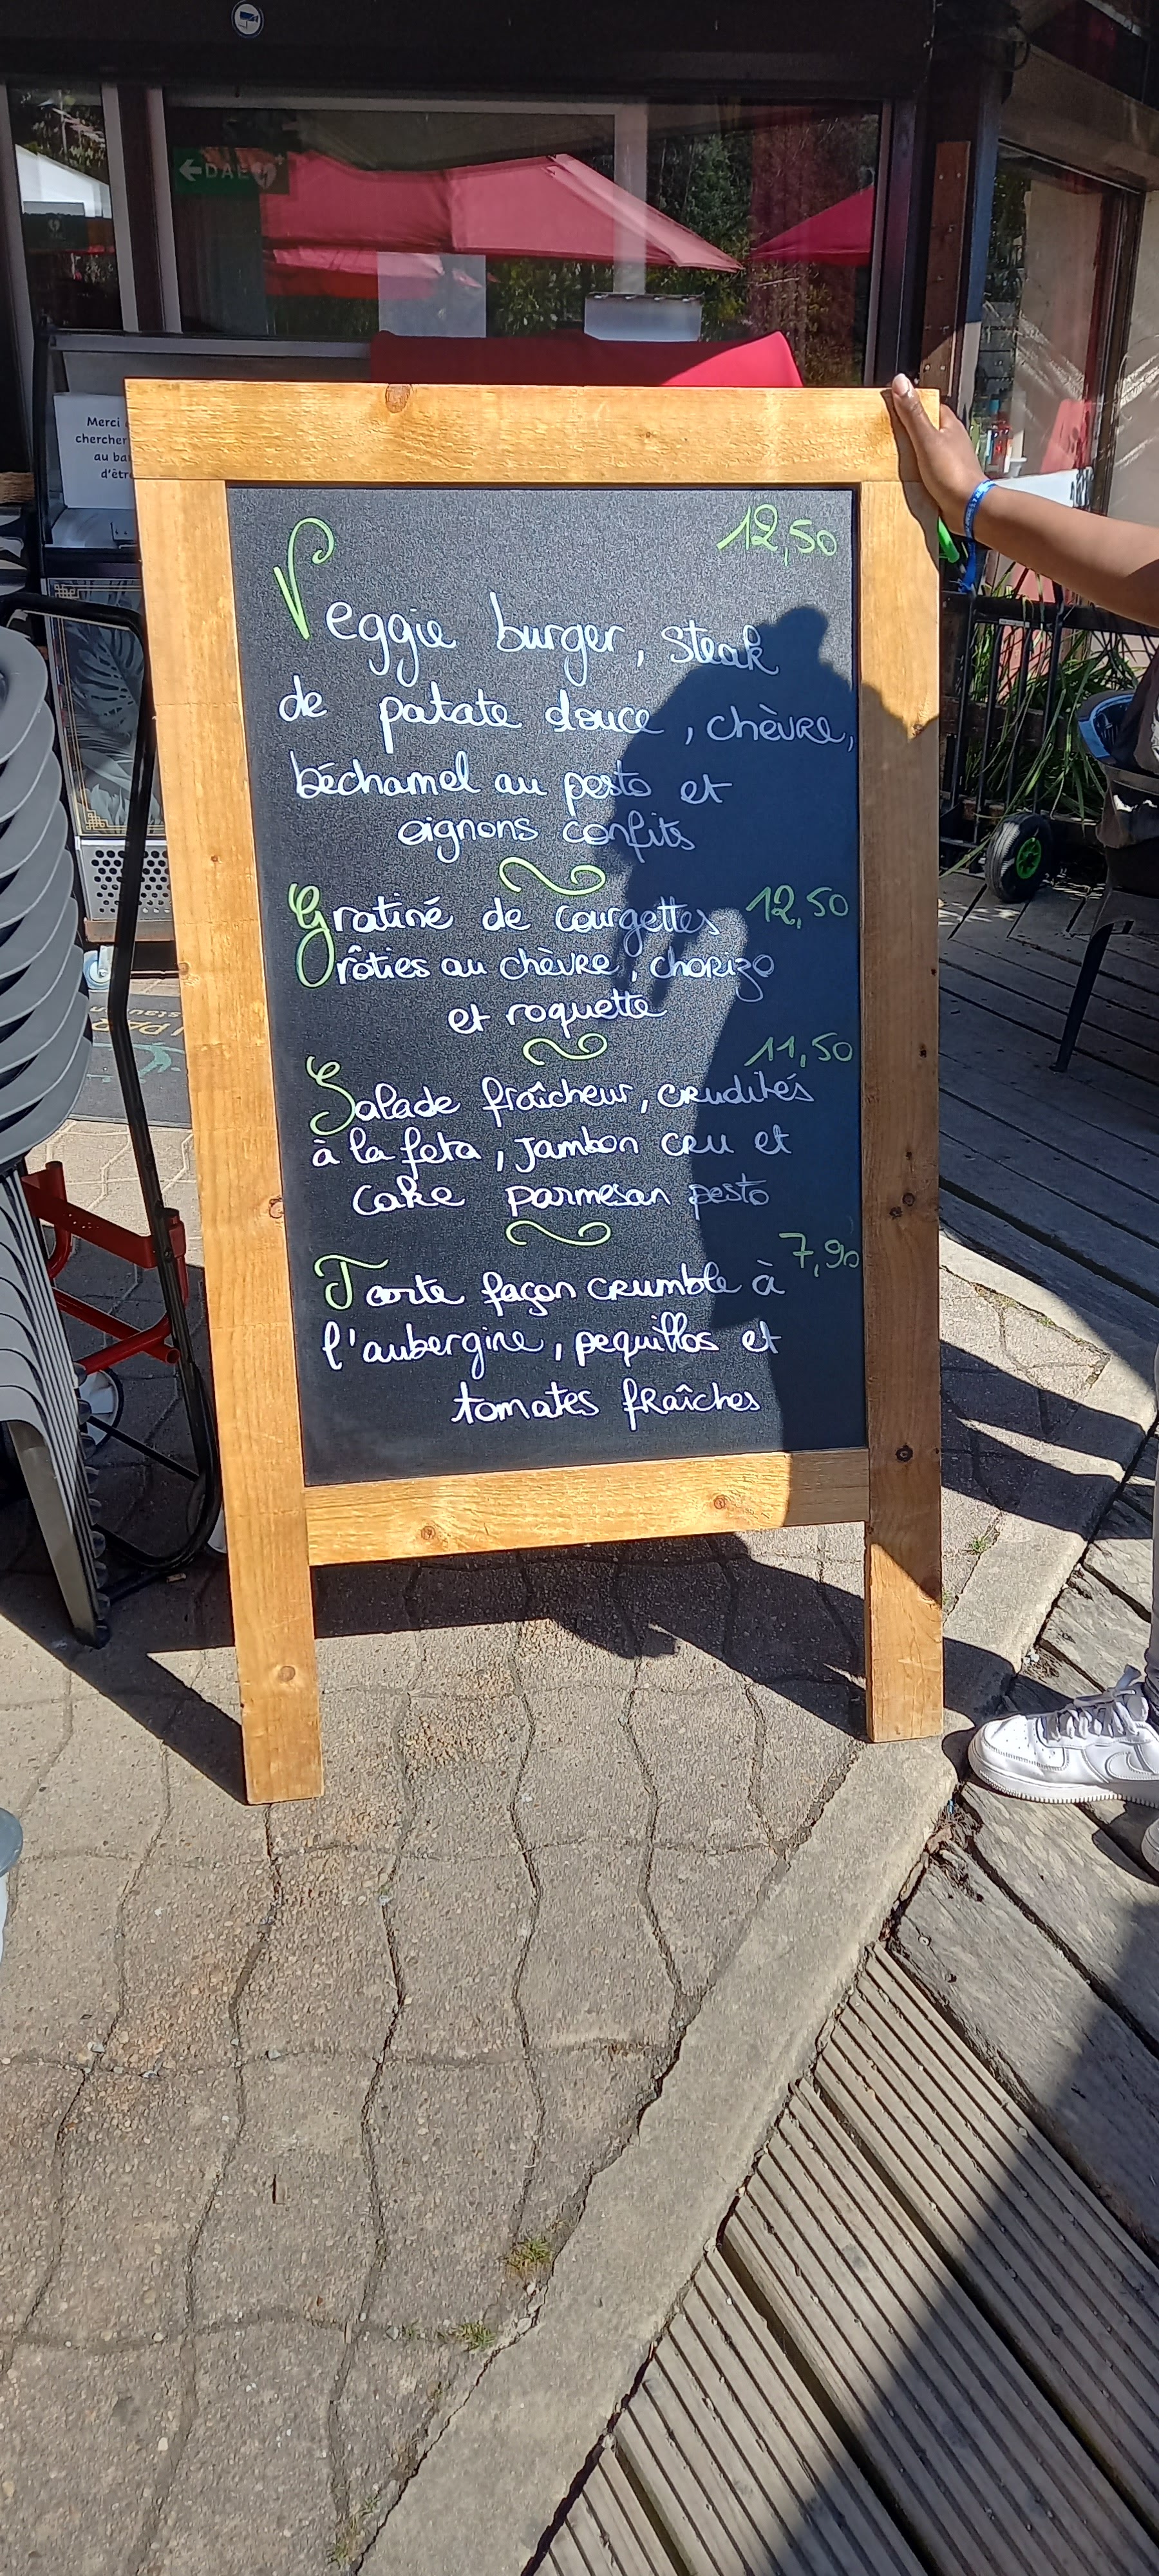 DAE
Merci
chercher
au
d'êtr
12,50
Veggie burger, steak
de patate douce, chèvre,
béchamel au pesto et
oignons confits
Gratiné de courgettes 12,50
rôties au chèvre, chorizo
et roquette
11,50
Salade fraîcheur, crudités
à la feta, jambon cru et
cake parmesan pesto
7,90
Tarte façon crumble à
l'aubergine, pequillos et
tomates fraîches